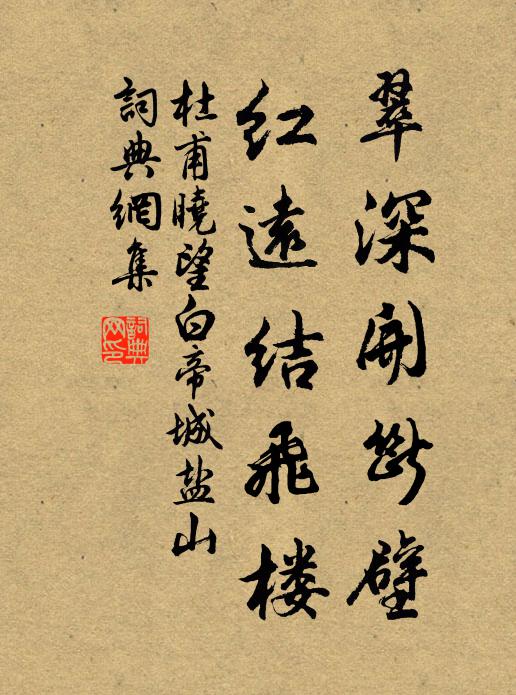 翠深開断壁
红遠结飛楼
杜甫曉望白帝城盐山
詞典網集
詞典网印